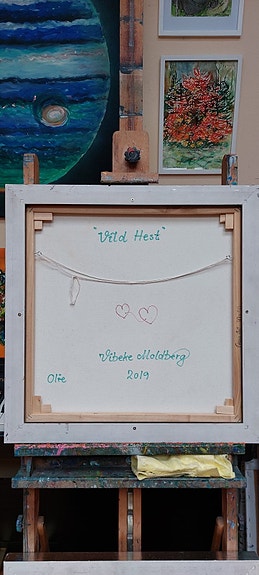 "Vild Hest"
Vibeke Moldberg
Olie 2019